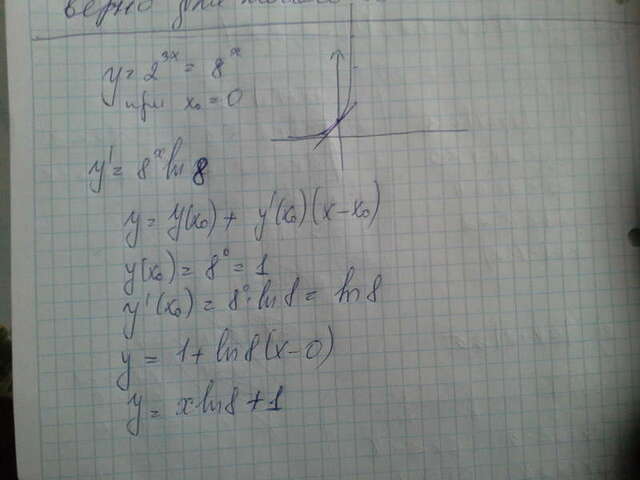 верно для
y = 2^{3x} = 8^x
при x₀ = 0
y' = 8^x ln 8
y = y(x₀) + y'(x₀)(x-x₀)
y(x₀) = 8⁰ = 1
y'(x₀) = 8⁰·ln 8 = ln 8
y = 1 + ln 8(x-0)
y = x ln 8 + 1